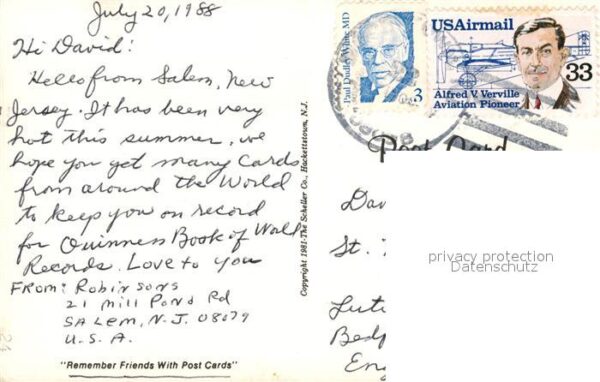 July 20, 1988
Hi David:
Hello from Salem, New
Jersey. It has been very
hot this summer. We
hope you get many cards
from around the World
to keep you on record
for Guinness Book of World
Records. Love to you
From: Robinsons
21 Mill Pond Rd
Salem, N.J. 08079
U.S.A.
"Remember Friends With Post Cards"
Copyright 1981-The Scheller Co., Hackettstown, N.J.
Paul Dudley White MD
3
USAirmail
33
Alfred V. Verville
Aviation Pioneer
Post Card
Dav
St.
Lut
Bedf
Eng
privacy protection
Datenschutz